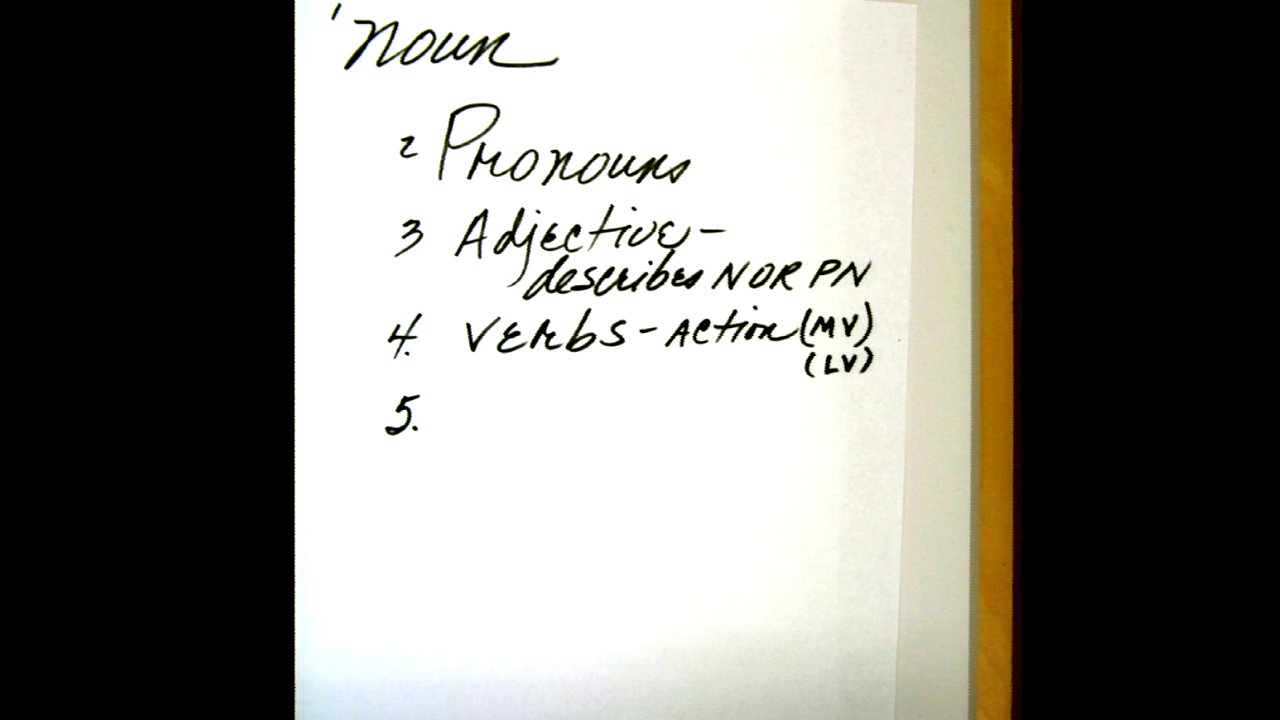 1 noun
2 Pronouns
3 Adjective -
describes N OR PN
4. Verbs - Action (MV)
(LV)
5.